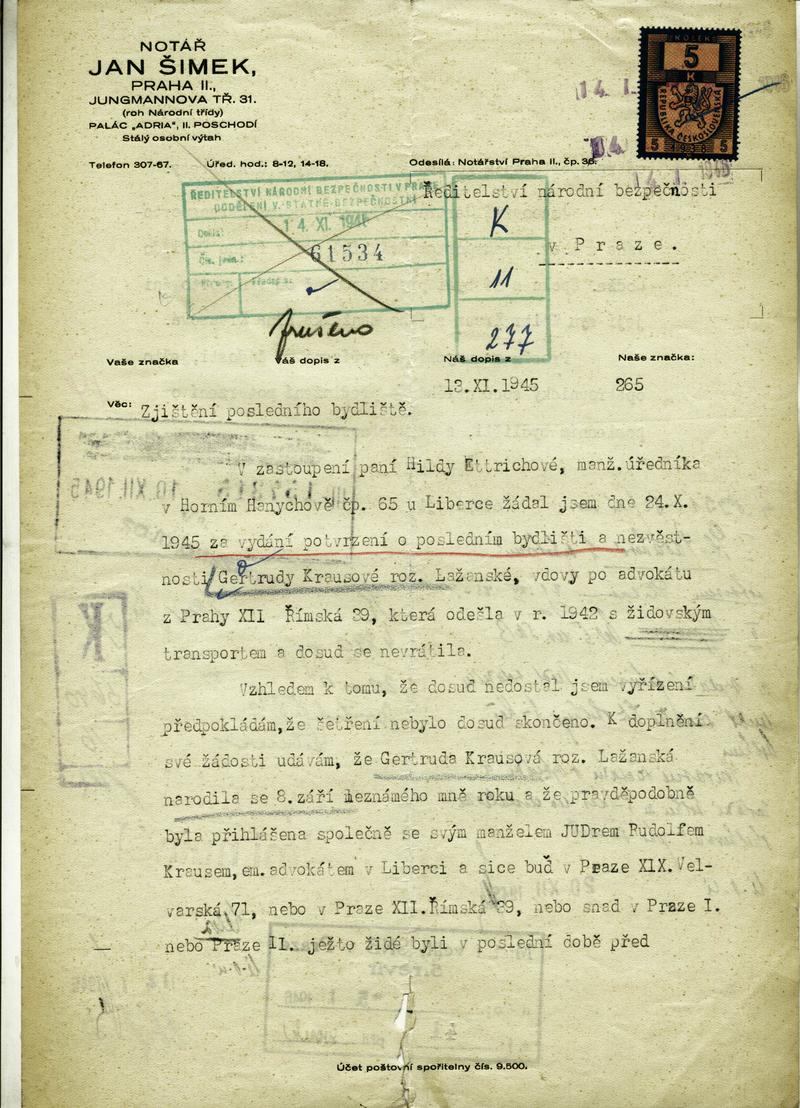 NOTÁŘ
JAN ŠIMEK,
PRAHA II.,
JUNGMANNOVA TŘ. 31.
(roh Národní třídy)
PALÁC „ADRIA", II. POSCHODÍ
Stálý osobní výtah
Telefon 307-67. Úřed. hod.: 8-12, 14-18.
Odesílá: Notářství Praha II., čp. 36.
KOLEK
5
K
REPUBLIKA ČESKOSLOVENSKÁ
5 1938 5
14. I.
ŘEDITELSTVÍ NÁRODNÍ BEZPEČNOSTI V PRAZE
ODDĚLENÍ V. STÁTNĚ BEZPEČNOSTNÍ
Došlo: 14. XI. 1945
Čís. jedn.: 61534
Ředitelství národní bezpečnosti
v Praze.
K
11
277
zrušeno
Vaše značka Váš dopis z Náš dopis z Naše značka:
13.XI.1945 265
Věc: Zjištění posledního bydliště.
V zastoupení paní Hildy Ettrichové, manž.úředníka
v Horním Hanychově čp. 65 u Liberce žádal jsem dne 24.X.
1945 za vydání potvrzení o posledním bydlišti a nezvěst-
nosti Gertrudy Krausové roz. Lažanské, vdovy po advokátu
z Prahy XII Římská 39, která odešla v r. 1942 s židovským
transportem a dosud se nevrátila.
Vzhledem k tomu, že dosud nedostal jsem vyřízení
předpokládám,že šetření nebylo dosud skončeno. K doplnění
své žádosti udávám, že Gertruda Krausová roz. Lažanská
narodila se 8. září neznámého mně roku a že pravděpodobně
byla přihlášena společně se svým manželem JUDrem Rudolfem
Krausem,em.advokátem v Liberci a sice buď v Praze XIX.Vel-
varská 71, nebo v Praze XII.Římská 39, nebo snad v Praze I.
nebo Praze II. ježto židé byli v poslední době před
Účet poštovní spořitelny čís. 9.500.